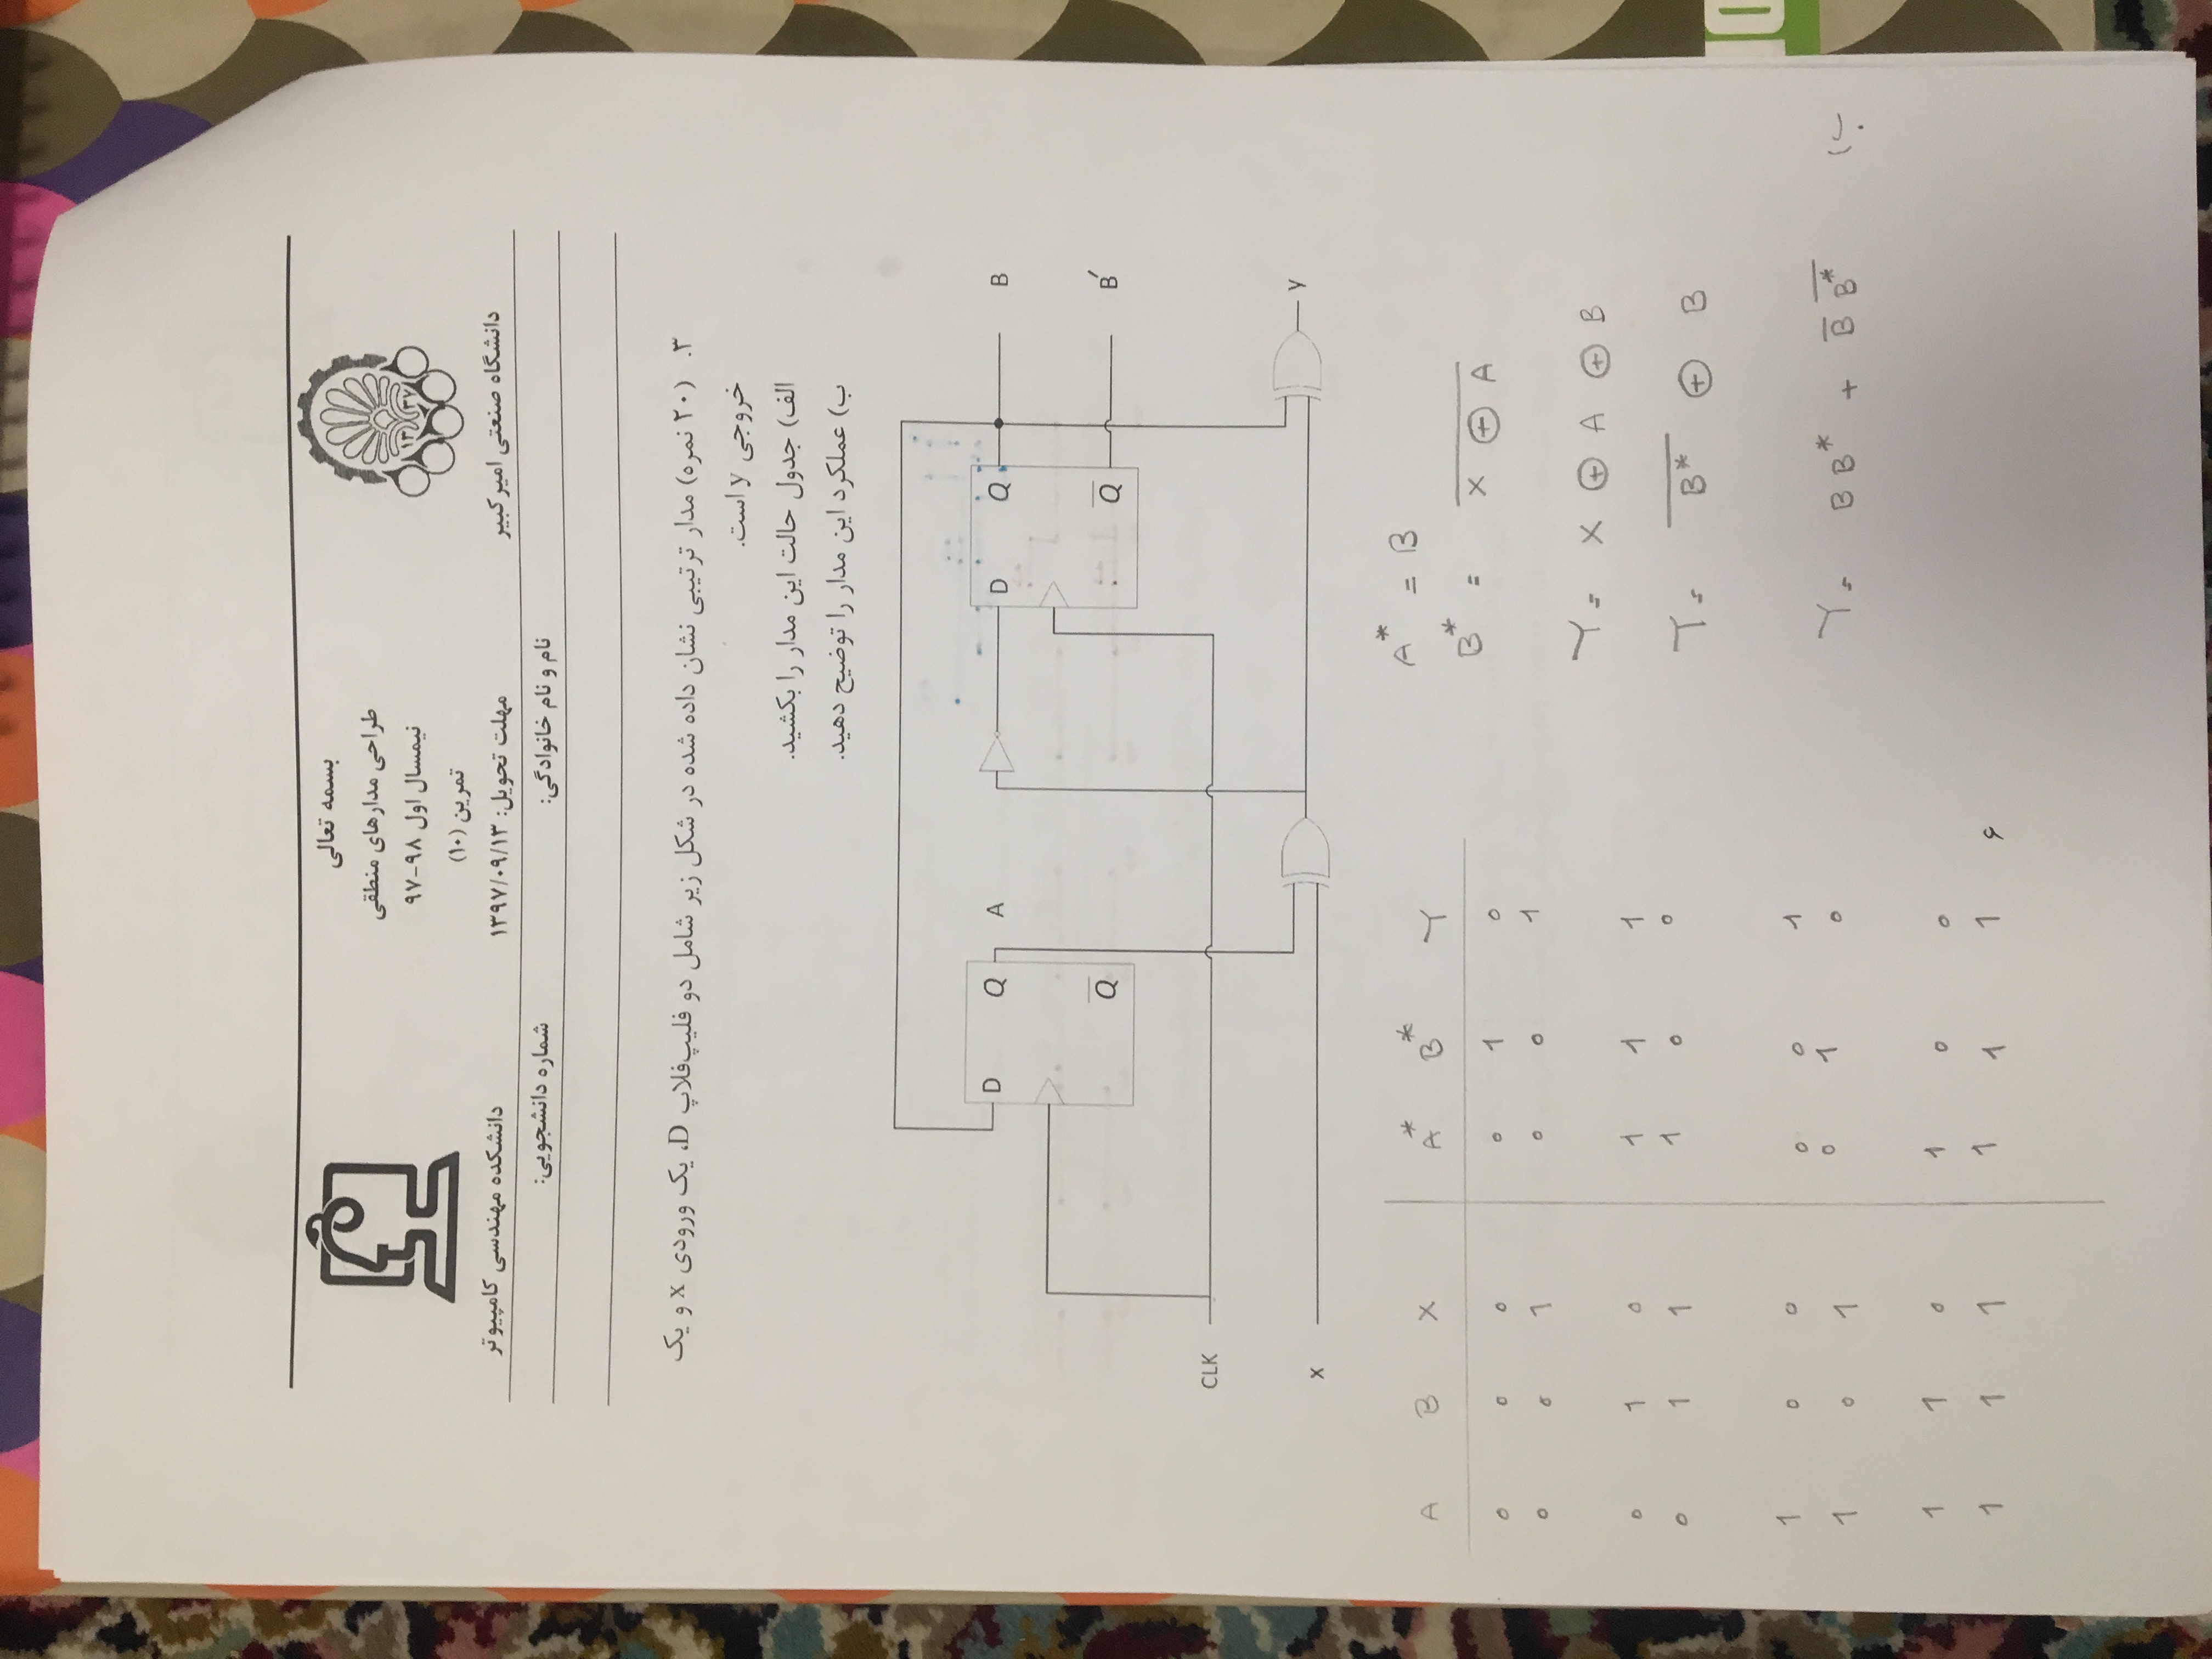 بسمه تعالی
طراحی مدارهای منطقی
نیمسال اول ۹۸-۹۷
تمرین (۱۰)
۱۳ ۳۷
دانشگاه صنعتی امیرکبیر
مهلت تحویل: ۱۳۹۷/۰۹/۱۳
دانشکده مهندسی کامپیوتر
نام و نام خانوادگی:
شماره دانشجویی:
۳. (۲۰ نمره) مدار ترتیبی نشان داده شده در شکل زیر شامل دو فلیپ‌فلاپ D، یک ورودی x و یک
خروجی y است.
الف) جدول حالت این مدار را بکشید.
ب) عملکرد این مدار را توضیح دهید.
D Q A D Q B
Q̅ Q̅ B′
CLK
x
y
A B X A* B* Y
0 0 0 0 1 0
0 0 1 0 0 1
0 1 0 1 1 1
0 1 1 1 0 0
1 0 0 0 0 1
1 0 1 0 1 0
1 1 0 1 0 0
1 1 1 1 1 1
۶
A* = B
B* = \overline{X ⊕ A}
Y = X ⊕ A ⊕ B
Y = \overline{B*} ⊕ B
ب) Y = B B* + \overline{B} \overline{B*}